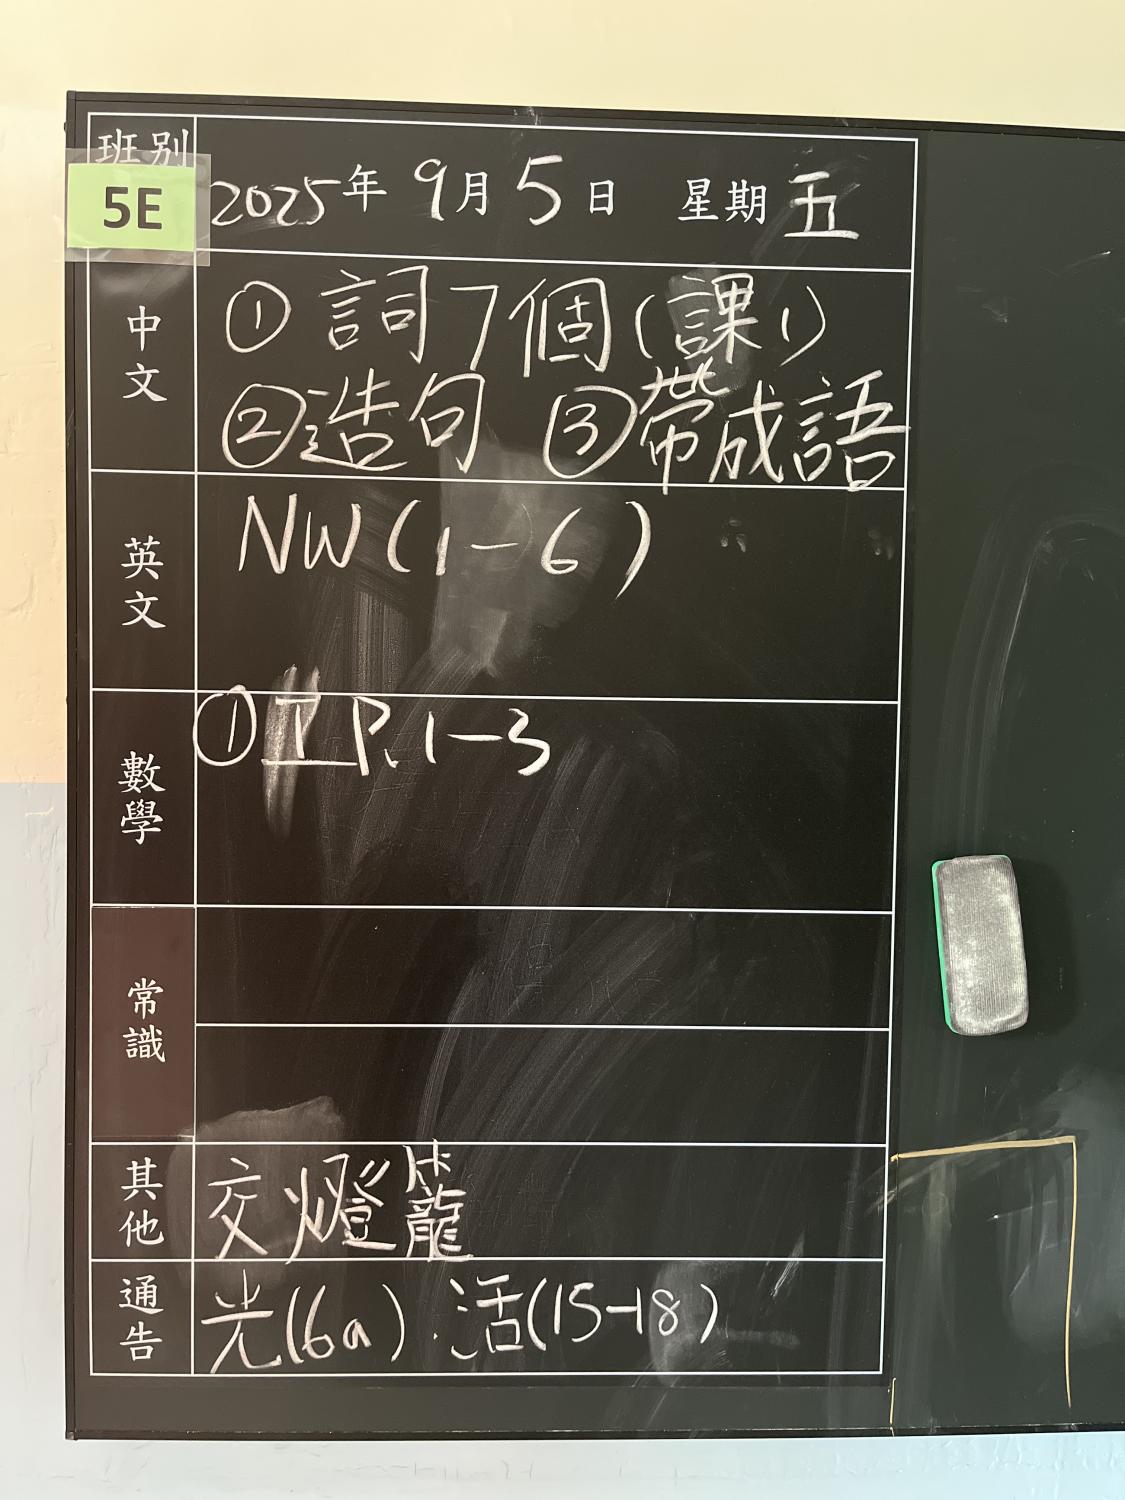 班別
5E
2025年 9月5日 星期五
中文
① 詞7個(課1)
② 造句 ③ 帶成語
英文
NW(1-6)
數學
① 工 P.1-3
常識
其他
交燈籠
通告
光(6a).活(15-18)